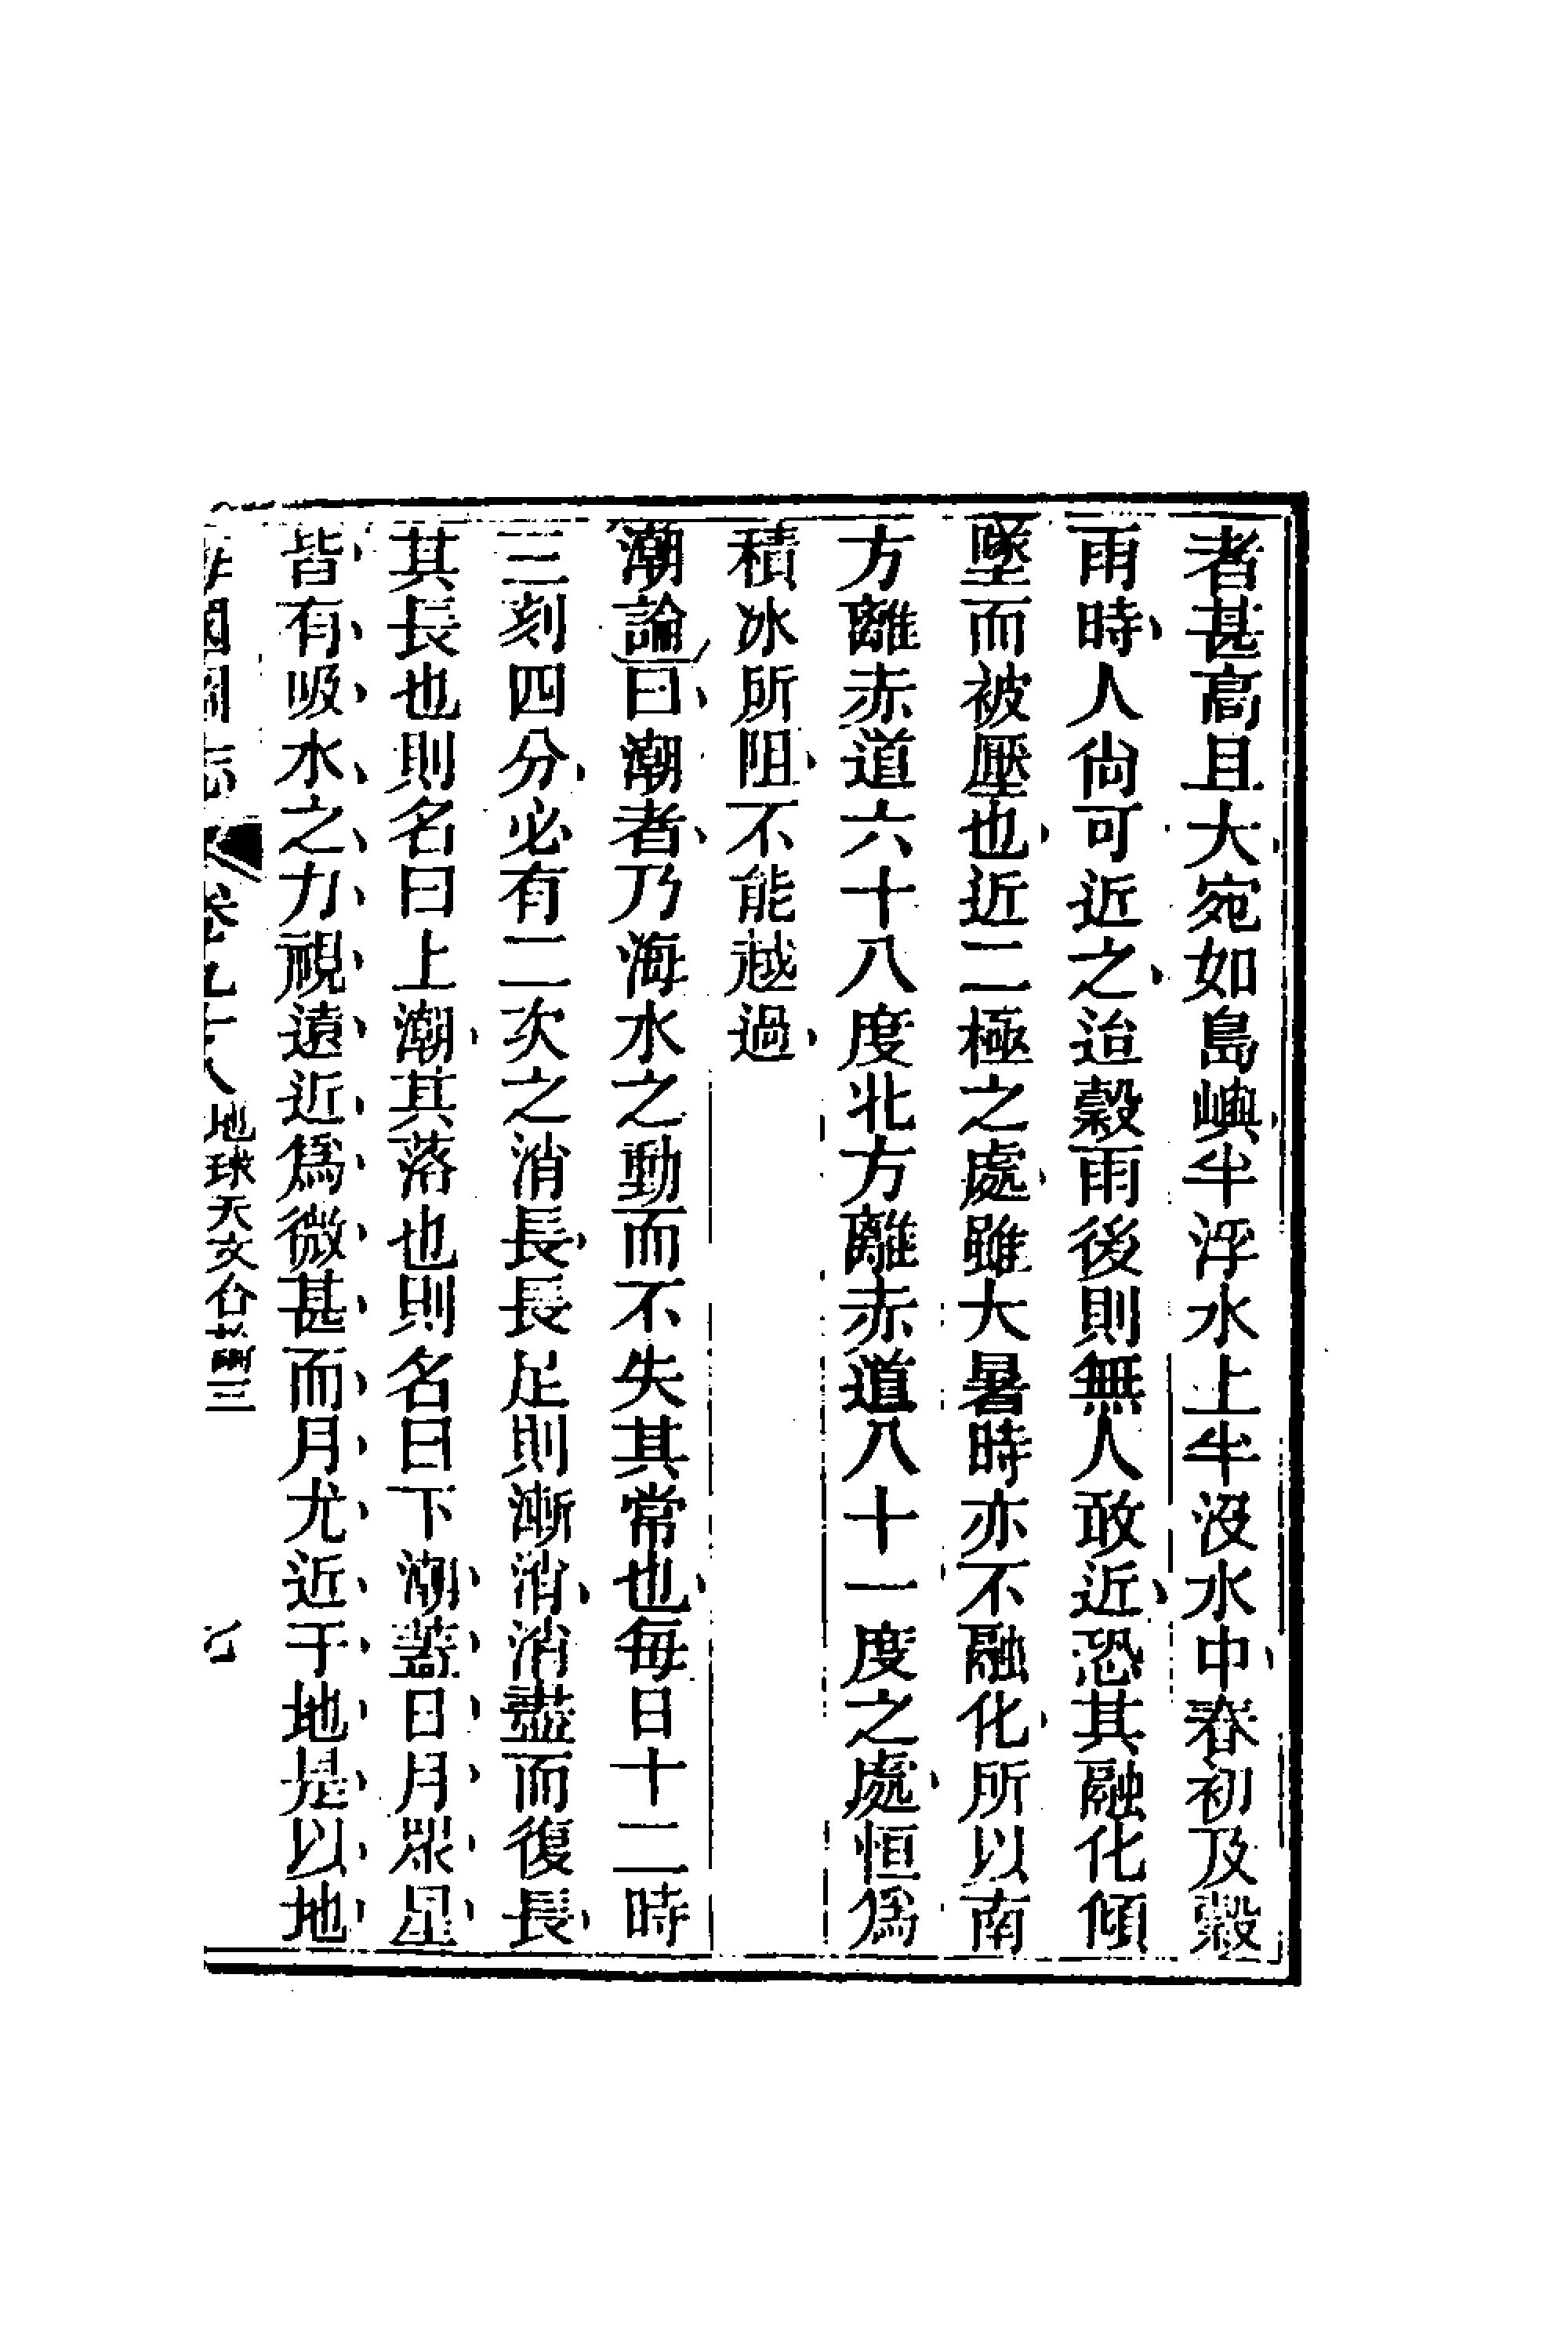 者甚高且大宛如島嶼半浮水上半沒水中春初及穀
雨時人尙可近之迨穀雨後則無人敢近恐其融化傾
墜而被壓也近二極之處雖大暑時亦不融化所以南
方離赤道六十八度北方離赤道八十一度之處恒爲
積冰所阻不能越過
潮論曰潮者乃海水之動而不失其常也每日十二時
三刻四分必有二次之消長長足則漸消消盡而復長
其長也則名曰上潮其落也則名曰下潮葢日月眾星
皆有吸水之力視遠近爲微甚而月尤近于地是以地
海國圖志 卷九十八 地球天文合論三